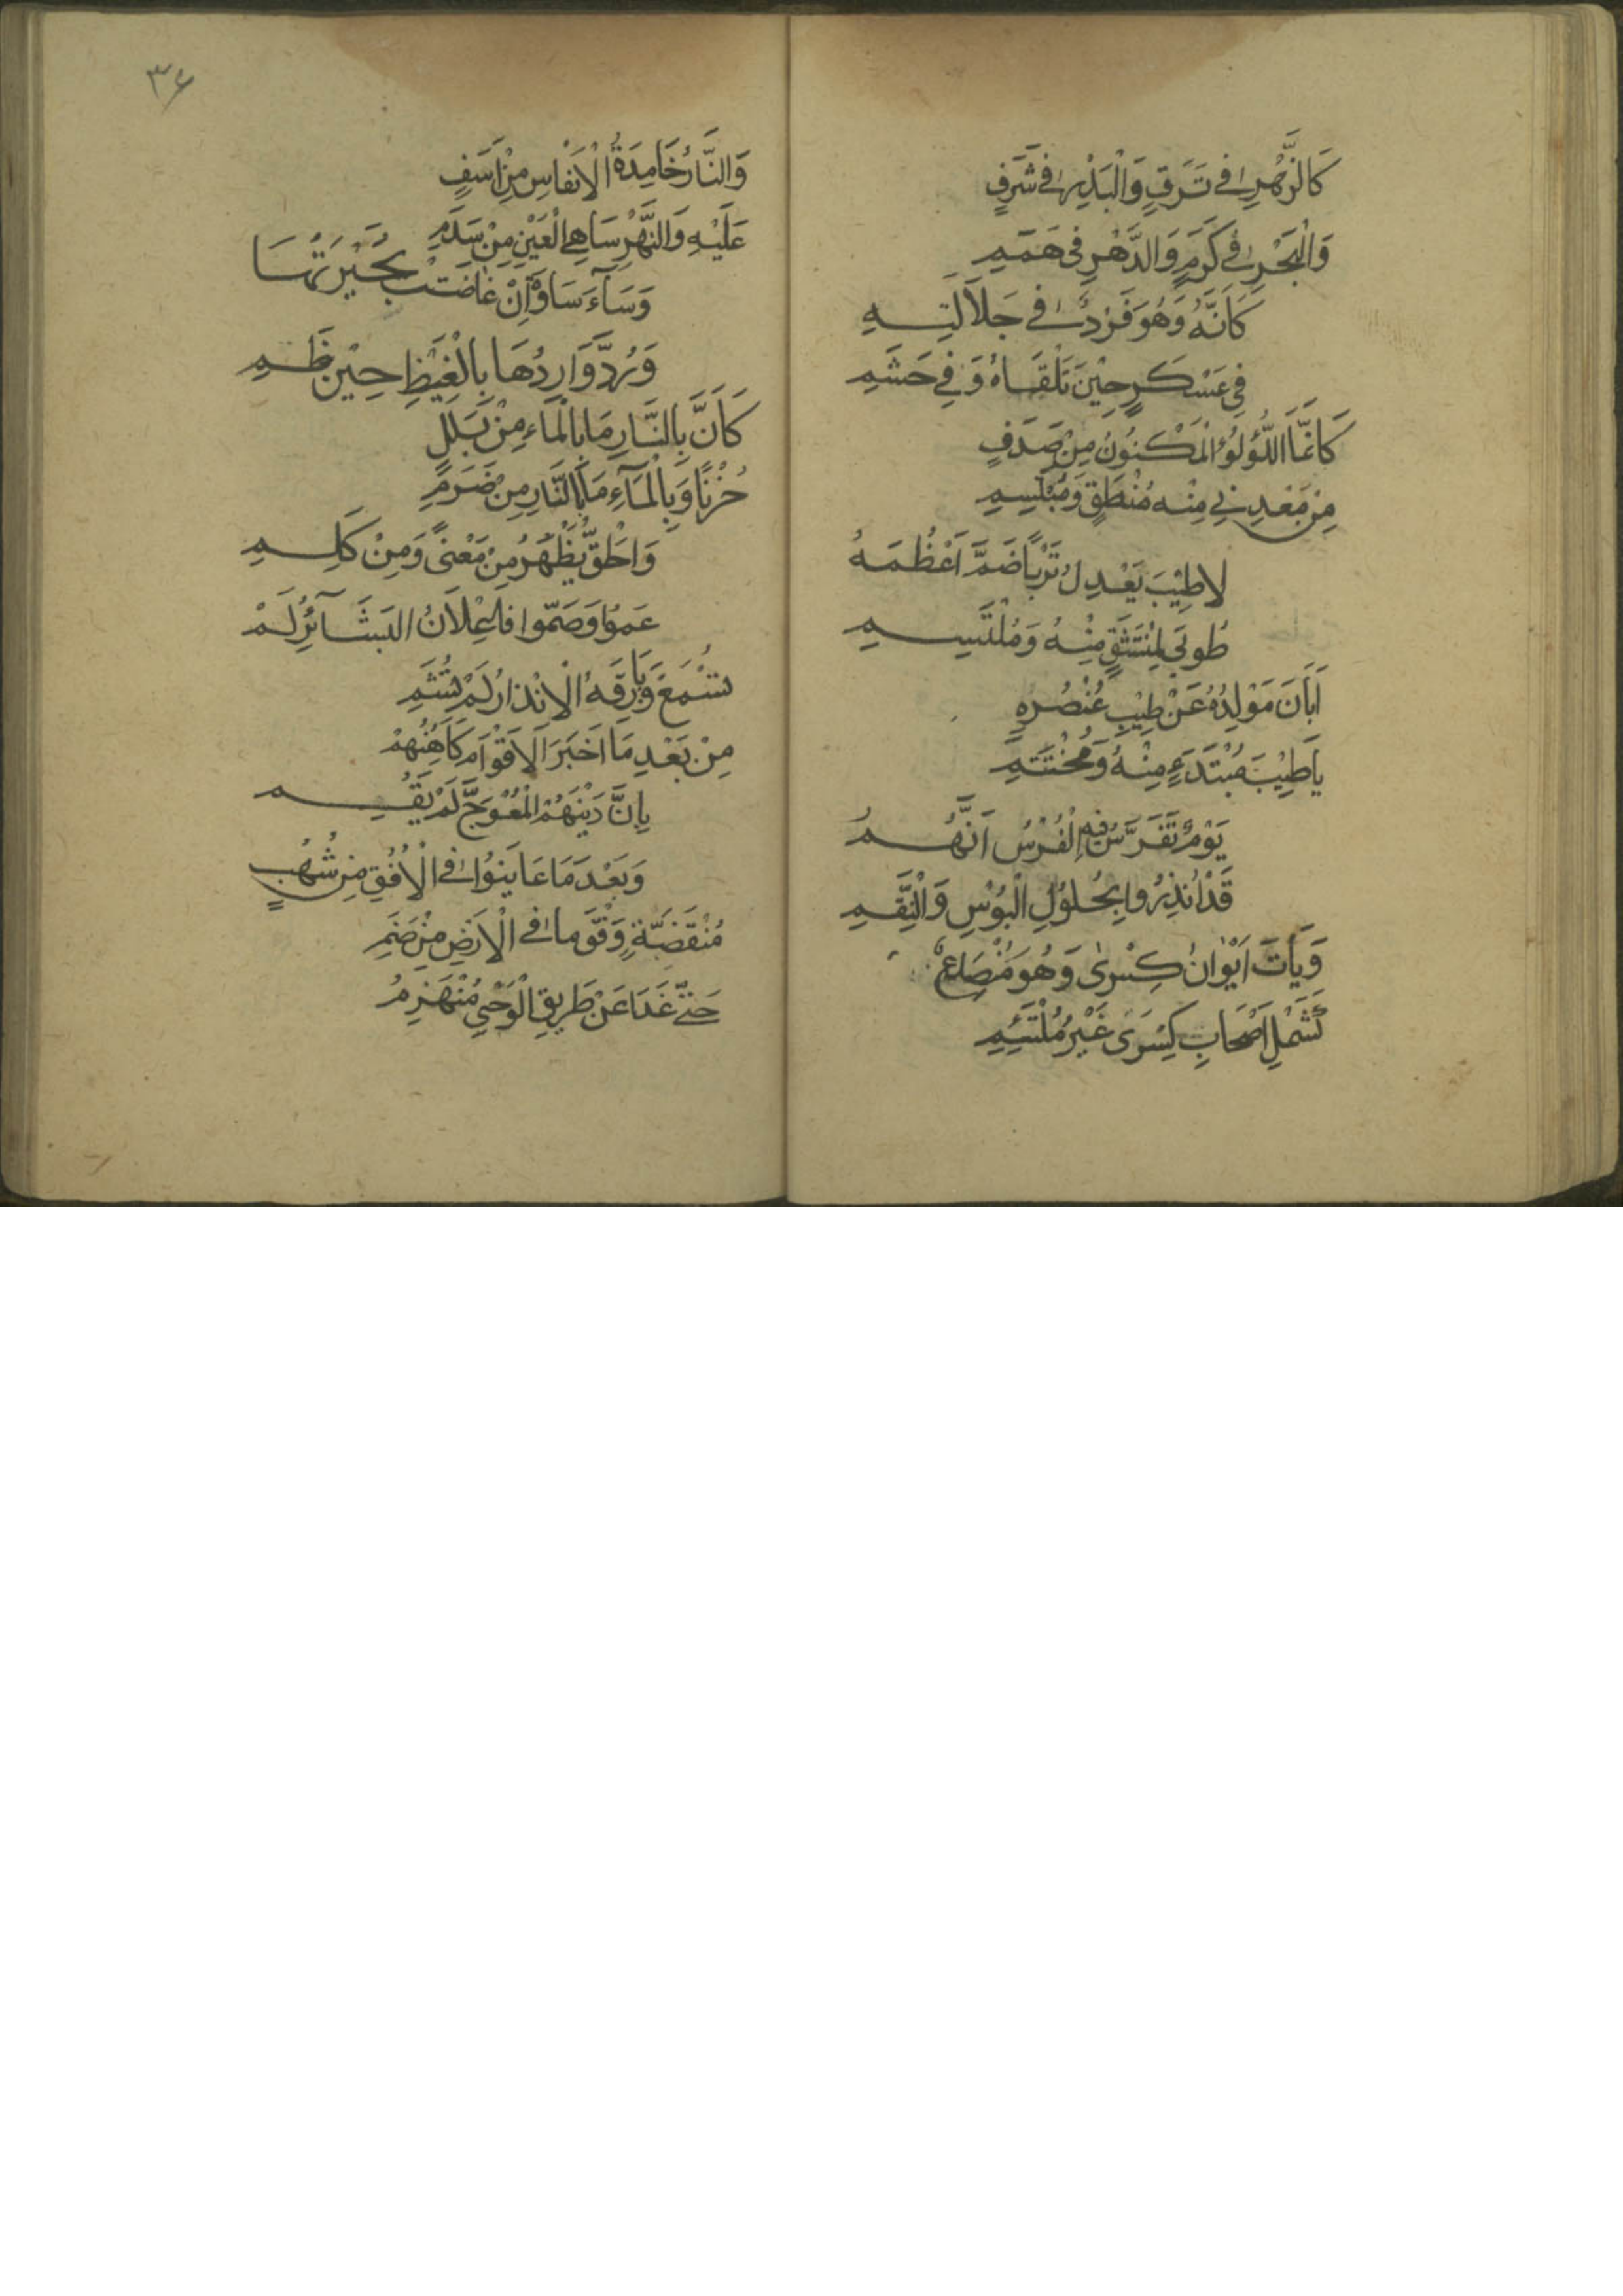 كَالزَّهْرِ فِي تَرَفٍ وَالْبَدْرِ فِي شَرَفٍ
وَالْبَحْرِ فِي كَرَمٍ وَالدَّهْرِ فِي هَمَمِ
كَاَنَّهُ وَهُوَ فَرْدٌ فِي جَلَالَتِهِ
فِي عَسْكَرٍ حِيْنَ تَلْقَاهُ وَفِي حَشَمِ
كَاَنَّمَا اللُّؤْلُؤُ الْمَكْنُوْنُ مِنْ صَدَفٍ
مِنْ مَعْدِنِي مِنْهُ مُنْطَقٍ وَمُبْتَسِمِ
لَا طِيْبَ يَعْدِلُ تُرْبًا ضَمَّ اَعْظُمَهُ
طُوبَى لِمُنْتَشِقٍ مِنْهُ وَمُلْتَسِمِ
اَبَانَ مَوْلِدُهُ عَنْ طِيْبِ عُنْصُرِهِ
يَا طِيْبَ مُبْتَدَءٍ مِنْهُ وَمُخْتَتَمِ
يَوْمٌ تَفَرَّسَ فِيهِ الْفُرْسُ اَنَّهُمُ
قَدْ اُنْذِرُوا بِحُلُوْلِ الْبُؤْسِ وَالنِّقَمِ
وَبَاتَ اَيْوَانُ كِسْرَى وَهُوَ مُنْصَدِعٌ
كَشَمْلِ اَصْحَابِ كِسْرَى غَيْرَ مُلْتَئِمِ
٣٤
وَالنَّارُ خَامِدَةُ الْاَنْفَاسِ مِنْ اَسَفٍ
عَلَيْهِ وَالنَّهْرِ سَاهِي الْعَيْنِ مِنْ سَدَمِ
وَسَآءَ سَاوَةَ اِنْ غَاضَتْ بُحَيْرَتُهَا
وَرُدَّ وَارِدُهَا بِالْغَيْظِ حِيْنَ ظَمِ
كَاَنَّ بِالنَّارِ مَا بِالْمَاءِ مِنْ بَلَلٍ
حُزْنًا وَبِالْمَآءِ مَا بِالنَّارِ مِنْ ضَرَمِ
وَالْحَقُّ يَظْهَرُ مِنْ مَعْنًى وَمِنْ كَلِمِ
عَمُوْا وَصَمُّوا فَاِعْلَانُ الْبَشَآئِرِ لَمْ
تُسْمَعْ وَبَارِقَةُ الْاِنْذَارِ لَمْ تُشَمِ
مِنْ بَعْدِ مَا اَخْبَرَ الْاَقْوَامَ كَاهِنُهُمْ
بِاَنَّ دِيْنَهُمُ الْمُعْوَجَّ لَمْ يَقُمِ
وَبَعْدَ مَا عَايَنُوْا فِي الْاُفُقِ مِنْ شُهُبٍ
مُنْقَضَّةٍ وَفْقَ مَا فِي الْاَرْضِ مِنْ صَنَمِ
حَتَّى غَدَا عَنْ طَرِيقِ الْوَحْيِ مُنْهَزِمُ